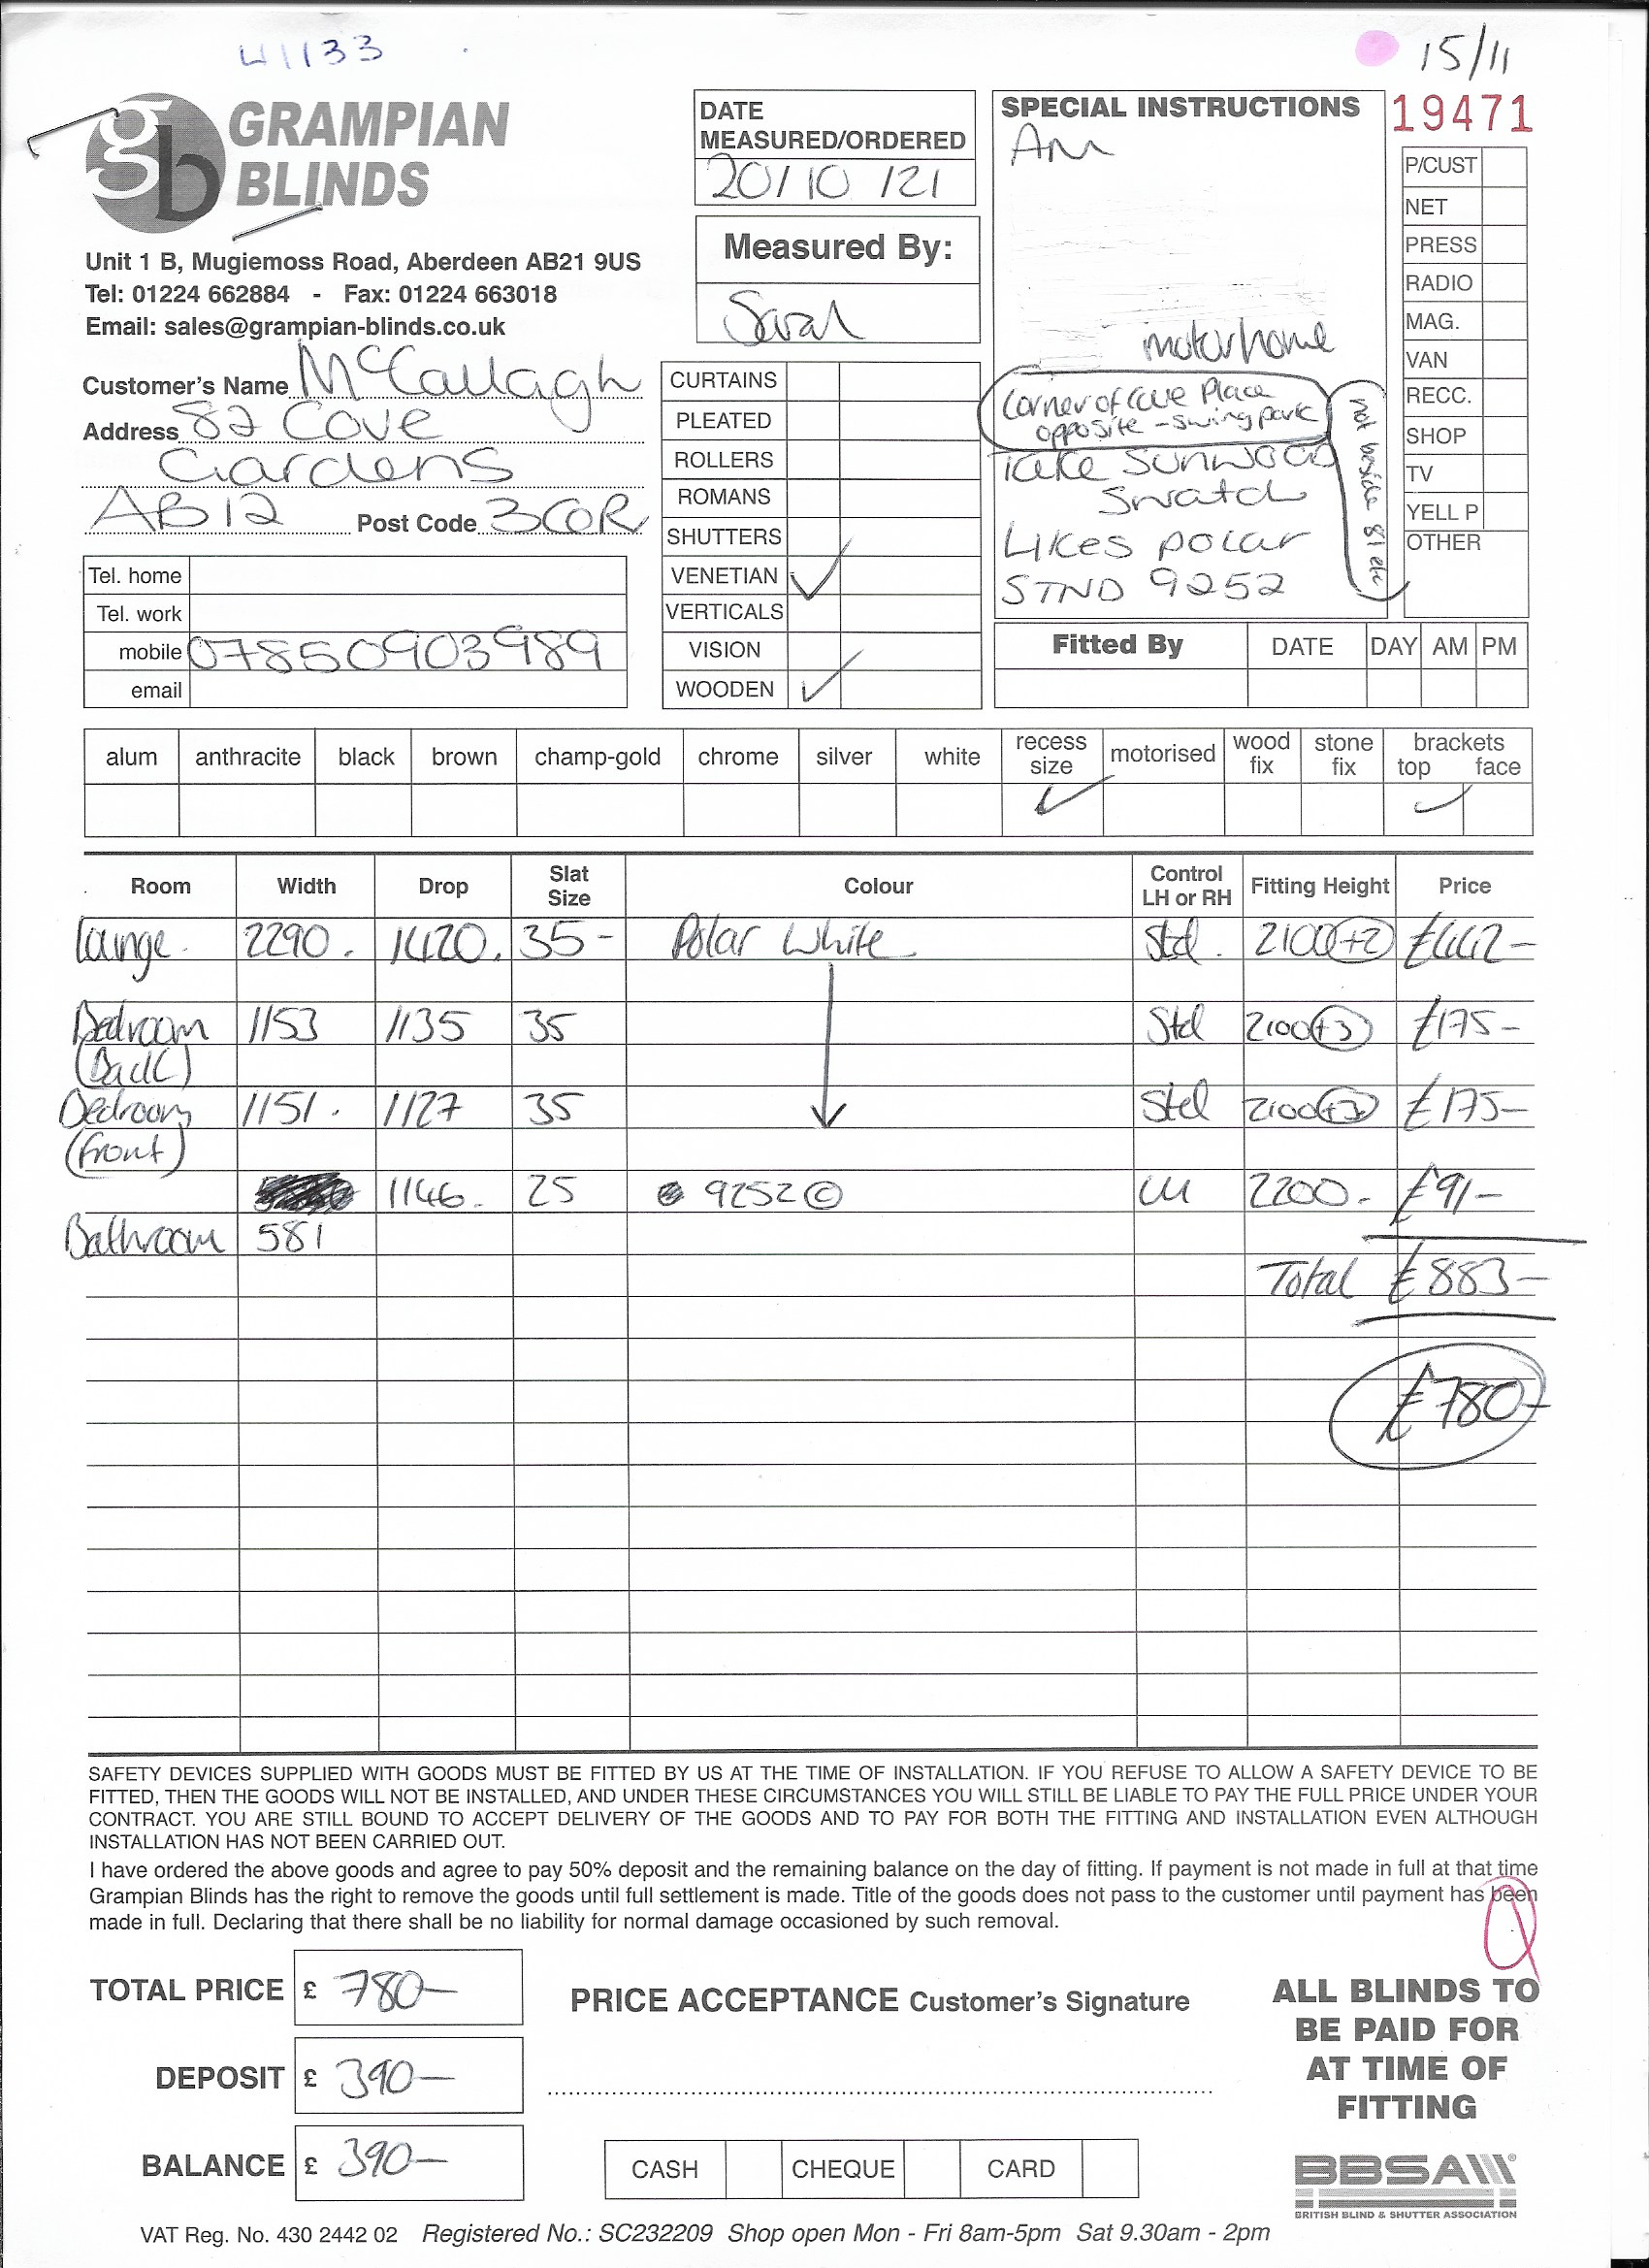 41133
15/11
GRAMPIAN
BLINDS
Unit 1 B, Mugiemoss Road, Aberdeen AB21 9US
Tel: 01224 662884 - Fax: 01224 663018
Email: sales@grampian-blinds.co.uk
Customer's Name McCallagh
Address 82 Cove
Gardens
AB12 Post Code
Tel. home
Tel. work
mobile 07850903989
email
DATE
MEASURED/ORDERED
20/10/21
Measured By:
Sarah
CURTAINS
PLEATED
ROLLERS
ROMANS
SHUTTERS
VENETIAN ✓
VERTICALS
VISION
WOODEN ✓
SPECIAL INSTRUCTIONS
AM
motorhome
Corner of Cove Place
opposite - swing park
not beside 81 etc
Take Sunwood
Swatch
Likes polar
STND 9252
19471
P/CUST
NET
PRESS
RADIO
MAG.
VAN
RECC.
SHOP
TV
YELL P
OTHER
Fitted By DATE DAY AM PM
alum anthracite black brown champ-gold chrome silver white recess size motorised wood fix stone fix brackets top face
✓ ✓
Room Width Drop Slat Size Colour Control LH or RH Fitting Height Price
Lounge 2290 1420 35 Polar White Std 2100 +2 £442-
Bedroom (Back) 1153 1135 35 Std 2100 +3 £175-
Bedroom (front) 1151 1127 35 Std 2100 £175-
1146 25 9252 © LH 2200 £91-
Bathroom 581
Total £883-
£780-
SAFETY DEVICES SUPPLIED WITH GOODS MUST BE FITTED BY US AT THE TIME OF INSTALLATION. IF YOU REFUSE TO ALLOW A SAFETY DEVICE TO BE
FITTED, THEN THE GOODS WILL NOT BE INSTALLED, AND UNDER THESE CIRCUMSTANCES YOU WILL STILL BE LIABLE TO PAY THE FULL PRICE UNDER YOUR
CONTRACT. YOU ARE STILL BOUND TO ACCEPT DELIVERY OF THE GOODS AND TO PAY FOR BOTH THE FITTING AND INSTALLATION EVEN ALTHOUGH
INSTALLATION HAS NOT BEEN CARRIED OUT.
I have ordered the above goods and agree to pay 50% deposit and the remaining balance on the day of fitting. If payment is not made in full at that time
Grampian Blinds has the right to remove the goods until full settlement is made. Title of the goods does not pass to the customer until payment has been
made in full. Declaring that there shall be no liability for normal damage occasioned by such removal.
TOTAL PRICE £ 780-
DEPOSIT £ 390-
BALANCE £ 390-
PRICE ACCEPTANCE Customer's Signature
CASH CHEQUE CARD
ALL BLINDS TO
BE PAID FOR
AT TIME OF
FITTING
BBSA
BRITISH BLIND & SHUTTER ASSOCIATION
VAT Reg. No. 430 2442 02 Registered No.: SC232209 Shop open Mon - Fri 8am-5pm Sat 9.30am - 2pm